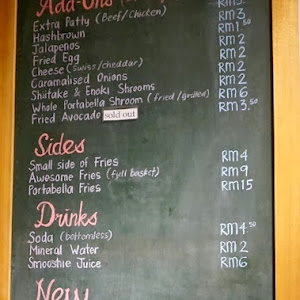 Add-Ons
Extra Patty (Beef/Chicken)
Hashbrown RM3
Jalapenos RM1.50
Fried Egg RM2
Cheese (swiss/cheddar) RM2
Caramalised Onions RM2
Shiitake & Enoki Shrooms RM2
Whole Portabella Shroom (fried/grilled) RM6
Fried Avocado sold out RM3.50
Sides
Small side of Fries RM4
Awesome Fries (full basket) RM9
Portabella Fries RM15
Drinks
Soda (bottomless) RM4.50
Mineral Water RM2
Smoothie Juice RM6
New